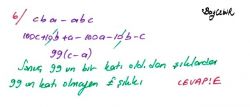 6/ cba - abc
100c+10b+a-100a-10b-c
99(c-a)
Sonuç 99 un bir katı old.dan şıklardan
99 un katı olmayan E şıkkı CEVAP:E